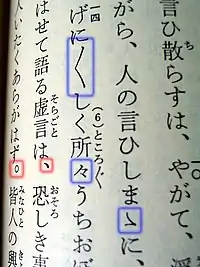 言ひ散らすは、やがて、浮
がら、人の言ひしまゝに、
げに〳〵しく所々うちおぼ
はせて語る虚言は、恐しき事
人いたくあらがはず。皆人の興